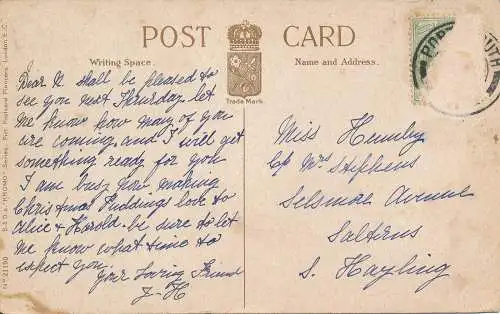 POST CARD
Writing Space.
Name and Address.
Trade Mark.
Dear N. shall be pleased to
see you next Thursday let
me know how many of you
are coming, and I will get
something ready for you
I am busy now, making
Christmas Puddings love to
Alice & Harold. be sure to let
me know what time to
expect you.
Your Loving Friend
J-H
Miss Hemsley
C/o Mrs Stephens
Selsmar Avenue
Salterns
S. Hayling
"KROMO" Series.
London E.C.
No 21190